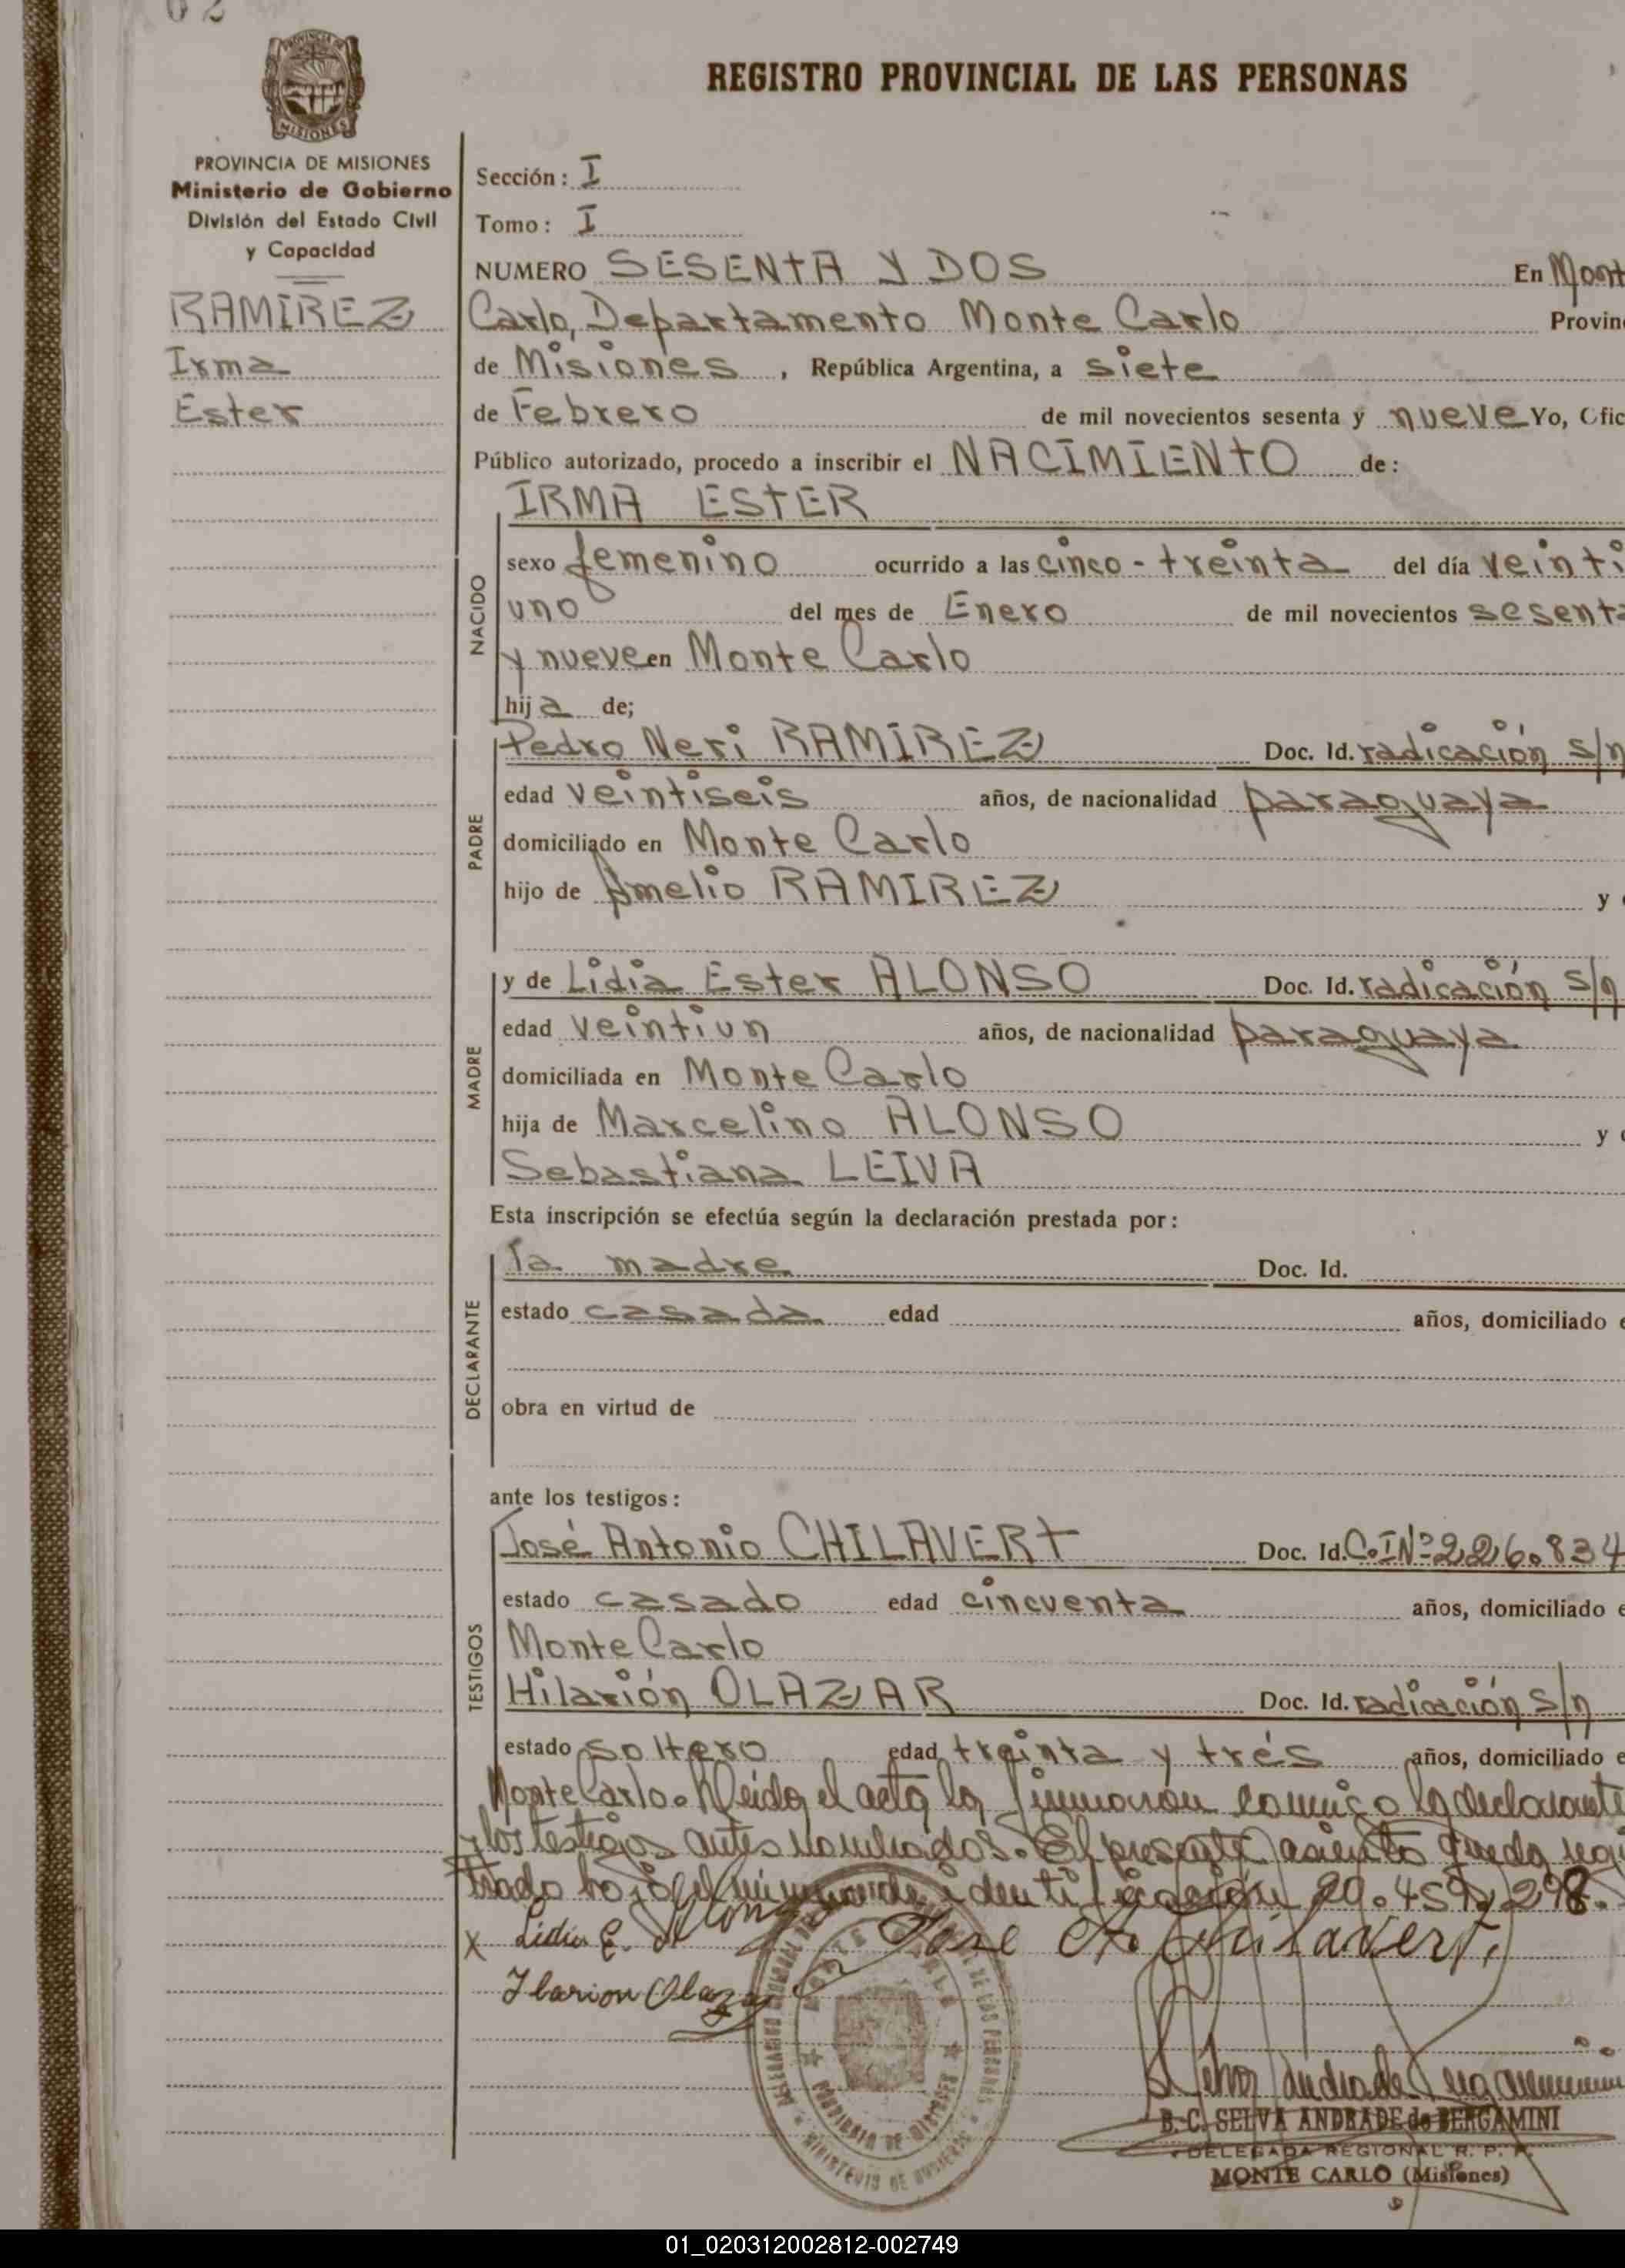 62
REGISTRO PROVINCIAL DE LAS PERSONAS
MISIONES
PROVINCIA DE MISIONES
Ministerio de Gobierno
División del Estado Civil
y Capacidad
RAMÍREZ
Irma
Ester
Sección: I
Tomo: I
NUMERO SESENTA Y DOS En Mont
Carlo, Departamento Monte Carlo Provin
de Misiones, República Argentina, a siete
de Febrero de mil novecientos sesenta y nueve Yo, Ofic
Público autorizado, procedo a inscribir el NACIMIENTO de:
IRMA ESTER
NACIDO
sexo femenino ocurrido a las cinco - treinta del día veinti
uno del mes de Enero de mil novecientos sesenta
y nueve en Monte Carlo
hija de;
PADRE
Pedro Neri RAMÍREZ Doc. Id. radicación s/n
edad veintiseis años, de nacionalidad paraguaya
domiciliado en Monte Carlo
hijo de Amelio RAMIREZ y
MADRE
y de Lidia Ester ALONSO Doc. Id. radicación s/n
edad veintiun años, de nacionalidad paraguaya
domiciliada en Monte Carlo
hija de Marcelino ALONSO y
Sebastiana LEIVA
Esta inscripción se efectúa según la declaración prestada por:
DECLARANTE
la madre Doc. Id.
estado casada edad años, domiciliado e
obra en virtud de
ante los testigos:
TESTIGOS
José Antonio CHILAVERT Doc. Id. C.I Nº 226.834
estado casado edad cincuenta años, domiciliado e
Monte Carlo
Hilarión OLAZAR Doc. Id. radicación s/n
estado soltero edad treinta y trés años, domiciliado e
Monte Carlo. Leida el acta la firmaron conmigo la declarante
y los testigos antes nombrados. El presente asiento queda regi
trado bajo el número de identificación 20.459.298.
x Lidia E. Alonzo Jose A. Chilavert.
Ilarion Olazar
Selva Andrade Bergamini
B. C. SELVA ANDRADE de BERGAMINI
DELEGADA REGIONAL R. P. P.
MONTE CARLO (Misiones)
PROVINCIA DE MISIONES
MINISTERIO DE GOBIERNO
01_020312002812-002749